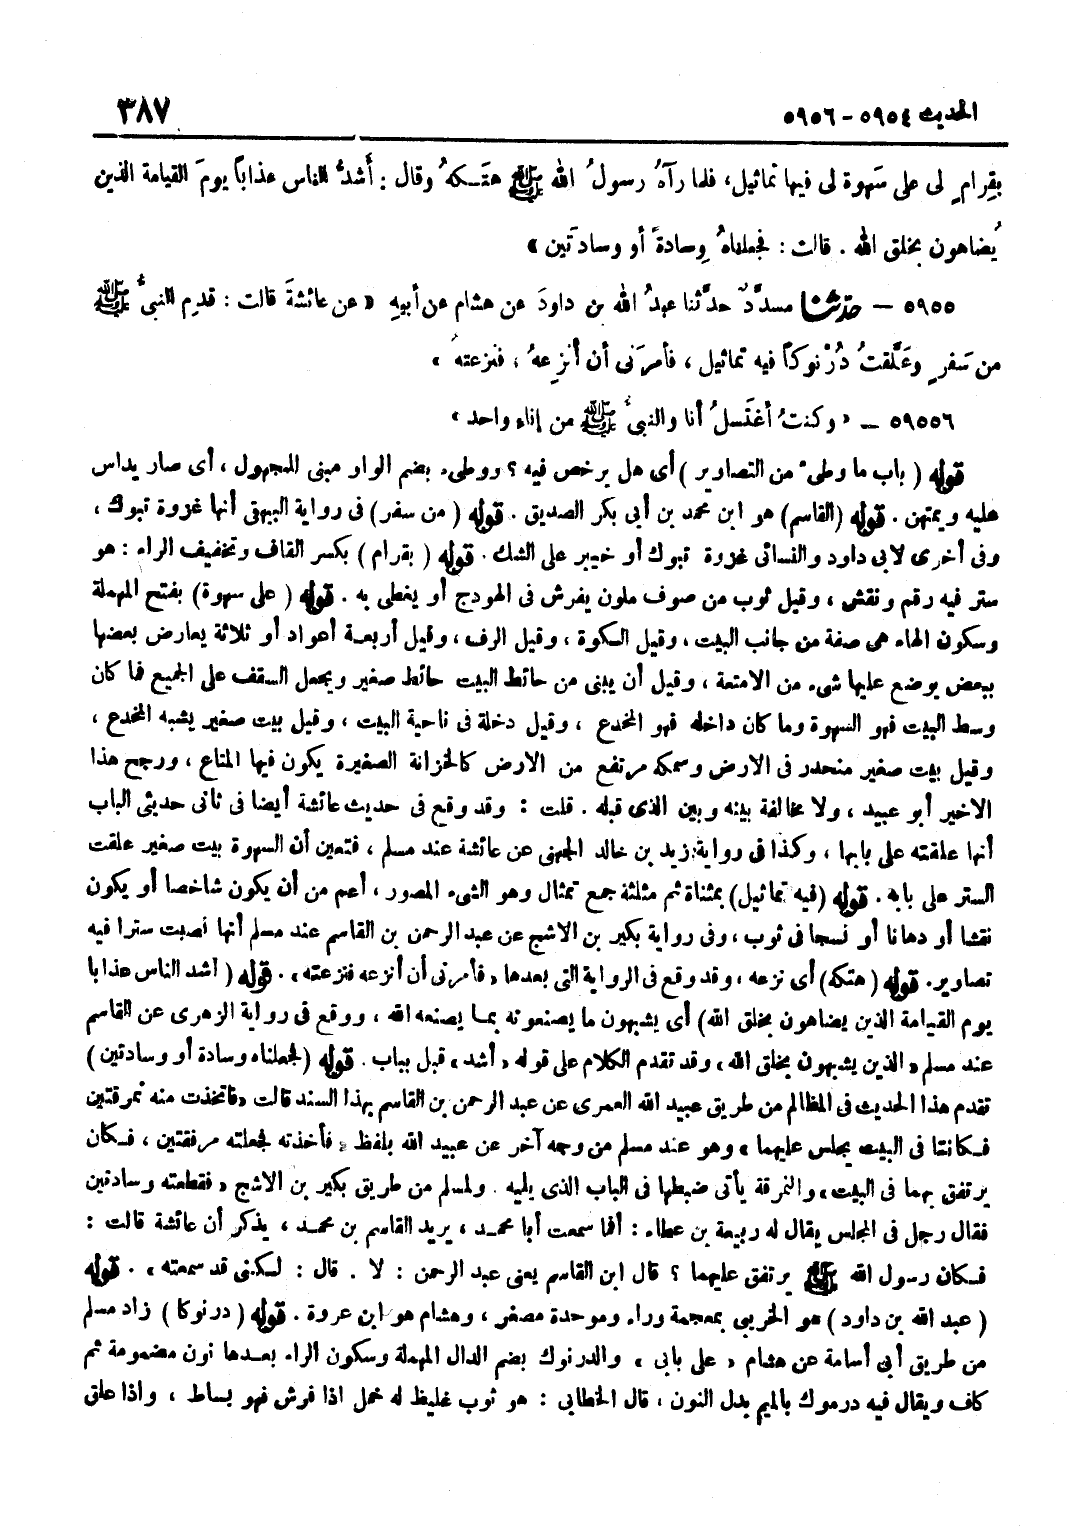 الحديث ٥٩٥٤ - ٥٩٥٦ ٣٨٧
بقِرامٍ لى على سَهوة لى فيها تماثيل، فلما رآهُ رسولُ الله ﷺ هتَـكهُ وقال : أَشدُّ الناس عذاباً يومَ القيامة الذين
يُضاهون بخلق الله . قالت : فجعلناهُ وِسادةً أو وسادَتين »
٥٩٥٥ – حدّثنا مسدَّدٌ حدَّثنا عبدُ الله بن داودَ عن هشام عن أبيهِ « عن عائشةَ قالت : قدِم النبىُّ ﷺ
من سَفرٍ وعَلَّقتُ دُرْنوكاً فيه تماثيل ، فأمرَنى أن أنزِعهُ ، فنزعتهُ »
٥٩٥٥٦ – « وكنتُ أغتَسلُ أنا والنبىُّ ﷺ من إناء واحد »
قوله ( باب ما وطىء من التصاوير ) أى هل يرخص فيه ؟ ووطىء بضم الواو مبنى للمجهول ، أى صار يداس
عليه ويمتهن . قوله (القاسم) هو ابن محمد بن أبى بكر الصديق . قوله ( من سفر ) فى رواية البيهقى أنها غزوة تبوك ،
وفى أخرى لابى داود والنسائى غزوة تبوك أو خيبر على الشك . قوله ( بقرام ) بكسر القاف وتخفيف الراء : هو
ستر فيه رقم ونقش ، وقيل ثوب من صوف ملون يفرش فى الهودج أو يغطى به . قوله ( على سهوة ) بفتح المهملة
وسكون الهاء هى صفة من جانب البيت ، وقيل الكوة ، وقيل الرف ، وقيل أربعـة أعواد أو ثلاثة يعارض بعضها
ببعض يوضع عليها شىء من الامتعة ، وقيل أن يبنى من حائط البيت حائط صغير ويجعل السقف على الجميع فما كان
وسط البيت فهو السهوة وما كان داخله فهو المخدع ، وقيل دخلة فى ناحية البيت ، وقيل بيت صغير يشبه المخدع ،
وقيل بيت صغير منحدر فى الارض وسمكه مرتفع من الارض كالخزانة الصغيرة يكون فيها المتاع ، ورجح هذا
الاخير أبو عبيد ، ولا مخالفة بينه وبين الذى قبله . قلت : وقد وقع فى حديث عائشة أيضا فى ثانى حديثى الباب
أنها علقته على بابها ، وكذا فى رواية زيد بن خالد الجهنى عن عائشة عند مسلم ، فتعين أن السهوة بيت صغير علقت
الستر على بابه . قوله (فيه تماثيل) بمثناة ثم مثلثة جمع تمثال وهو الشىء المصور ، أعم من أن يكون شاخصا أو يكون
نقشا أو دهانا أو نسجا فى ثوب ، وفى رواية بكير بن الاشج عن عبد الرحمن بن القاسم عند مسلم أنها نصبت سترا فيه
تصاوير. قوله ( هتكه ) أى نزعه ، وقد وقع فى الرواية التى بعدها « فأمرنى أن أنزعه فنزعته » . قوله ( أشد الناس عذابا
يوم القيامة الذين يضاهون بخلق الله) أى يشبهون ما يصنعونه بمـا يصنعه الله ، ووقع فى رواية الزهرى عن القاسم
عند مسلم « الذين يشبهون بخلق الله » وقد تقدم الكلام على قوله « أشد » قبل بباب . قوله ( فجعلناه وسادة أو وسادتين )
تقدم هذا الحديث فى المظالم من طريق عبيد الله العمرى عن عبد الرحمن بن القاسم بهذا السند قالت «فاتخذت منه نمرقتين
فـكانتا فى البيت يجلس عليهما » وهو عند مسلم من وجه آخر عن عبيد الله بلفظ « فأخذته فجعلته مرفقتين ، فـكان
يرتفق بهما فى البيت» والنمرقة يأتى ضبطها فى الباب الذى يليه . ولمسلم من طريق بكير بن الاشج « فقطعته وسادتين
فقال رجل فى المجلس يقال له ربيعة بن عطاء : أفما سمعت أبا محمـد ، يريد القاسم بن محمـد ، يذكر أن عائشة قالت :
فـكان رسول الله ﷺ يرتفق عليهما ؟ قال ابن القاسم يعنى عبد الرحمن : لا . قال : لـكنى قد سمعته » . قوله
( عبد الله بن داود ) هو الخريبى بمعجمة وراء وموحدة مصغر ، وهشام هو ابن عروة . قوله ( درنوكا ) زاد مسلم
من طريق أبى أسامة عن هشام « على بابى » والدرنوك بضم الدال المهملة وسكون الراء بعـدها نون مضمومة ثم
كاف ويقال فيه درموك بالميم بدل النون ، قال الخطابى : هو ثوب غليظ له خمل اذا فرش فهو بساط ، واذا علق